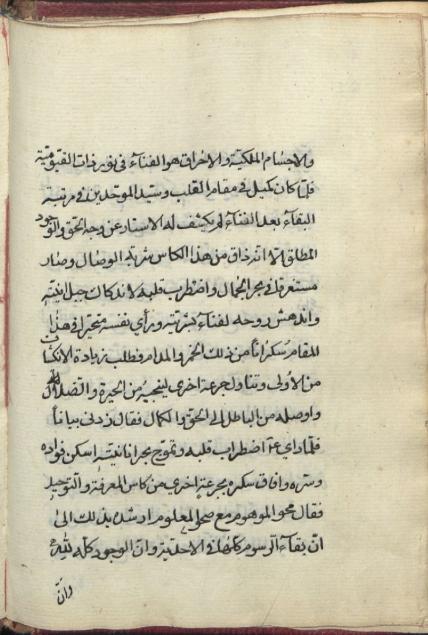 والاجسام الملكية والاحراق هو الفناء فى نور ذات القيومية
فلما كان كميل فى مقام القلب وسيد الموحدين فى مرتبة
البقاء بعد الفناء لم يكشف له الاستار عن وجه الحق والوجود
المطلق الا انه ذاق من هذا الكاس شربة الوصال وصار
مستغرقا فى بحر الجمال واضطرب قلبه لاندكاك جبل انيته
واندهش روحه لفناء كينونته ورأى نفسه متحيرا فى هذا
المقام سكرانا من ذلك الخمر والمدام فطلب زيادة الانكشاف
من الأولى وتناول جرعة اخرى لينجيه من الحيرة والضلال
واوصله من الباطل الى الحق والكمال فقال زدنى بيانا
فلما راى ع اضطراب قلبه وتموج بحر انانيته اسكن فؤاده
وسره وافاق سكره بجرعة اخرى من كاس المعرفة والتوحيد
فقال محو الموهوم مع صحو المعلوم ارشده بذلك الى
ان بقاء الرسوم كلها فى الاحدية وان الوجود كله لله
وان